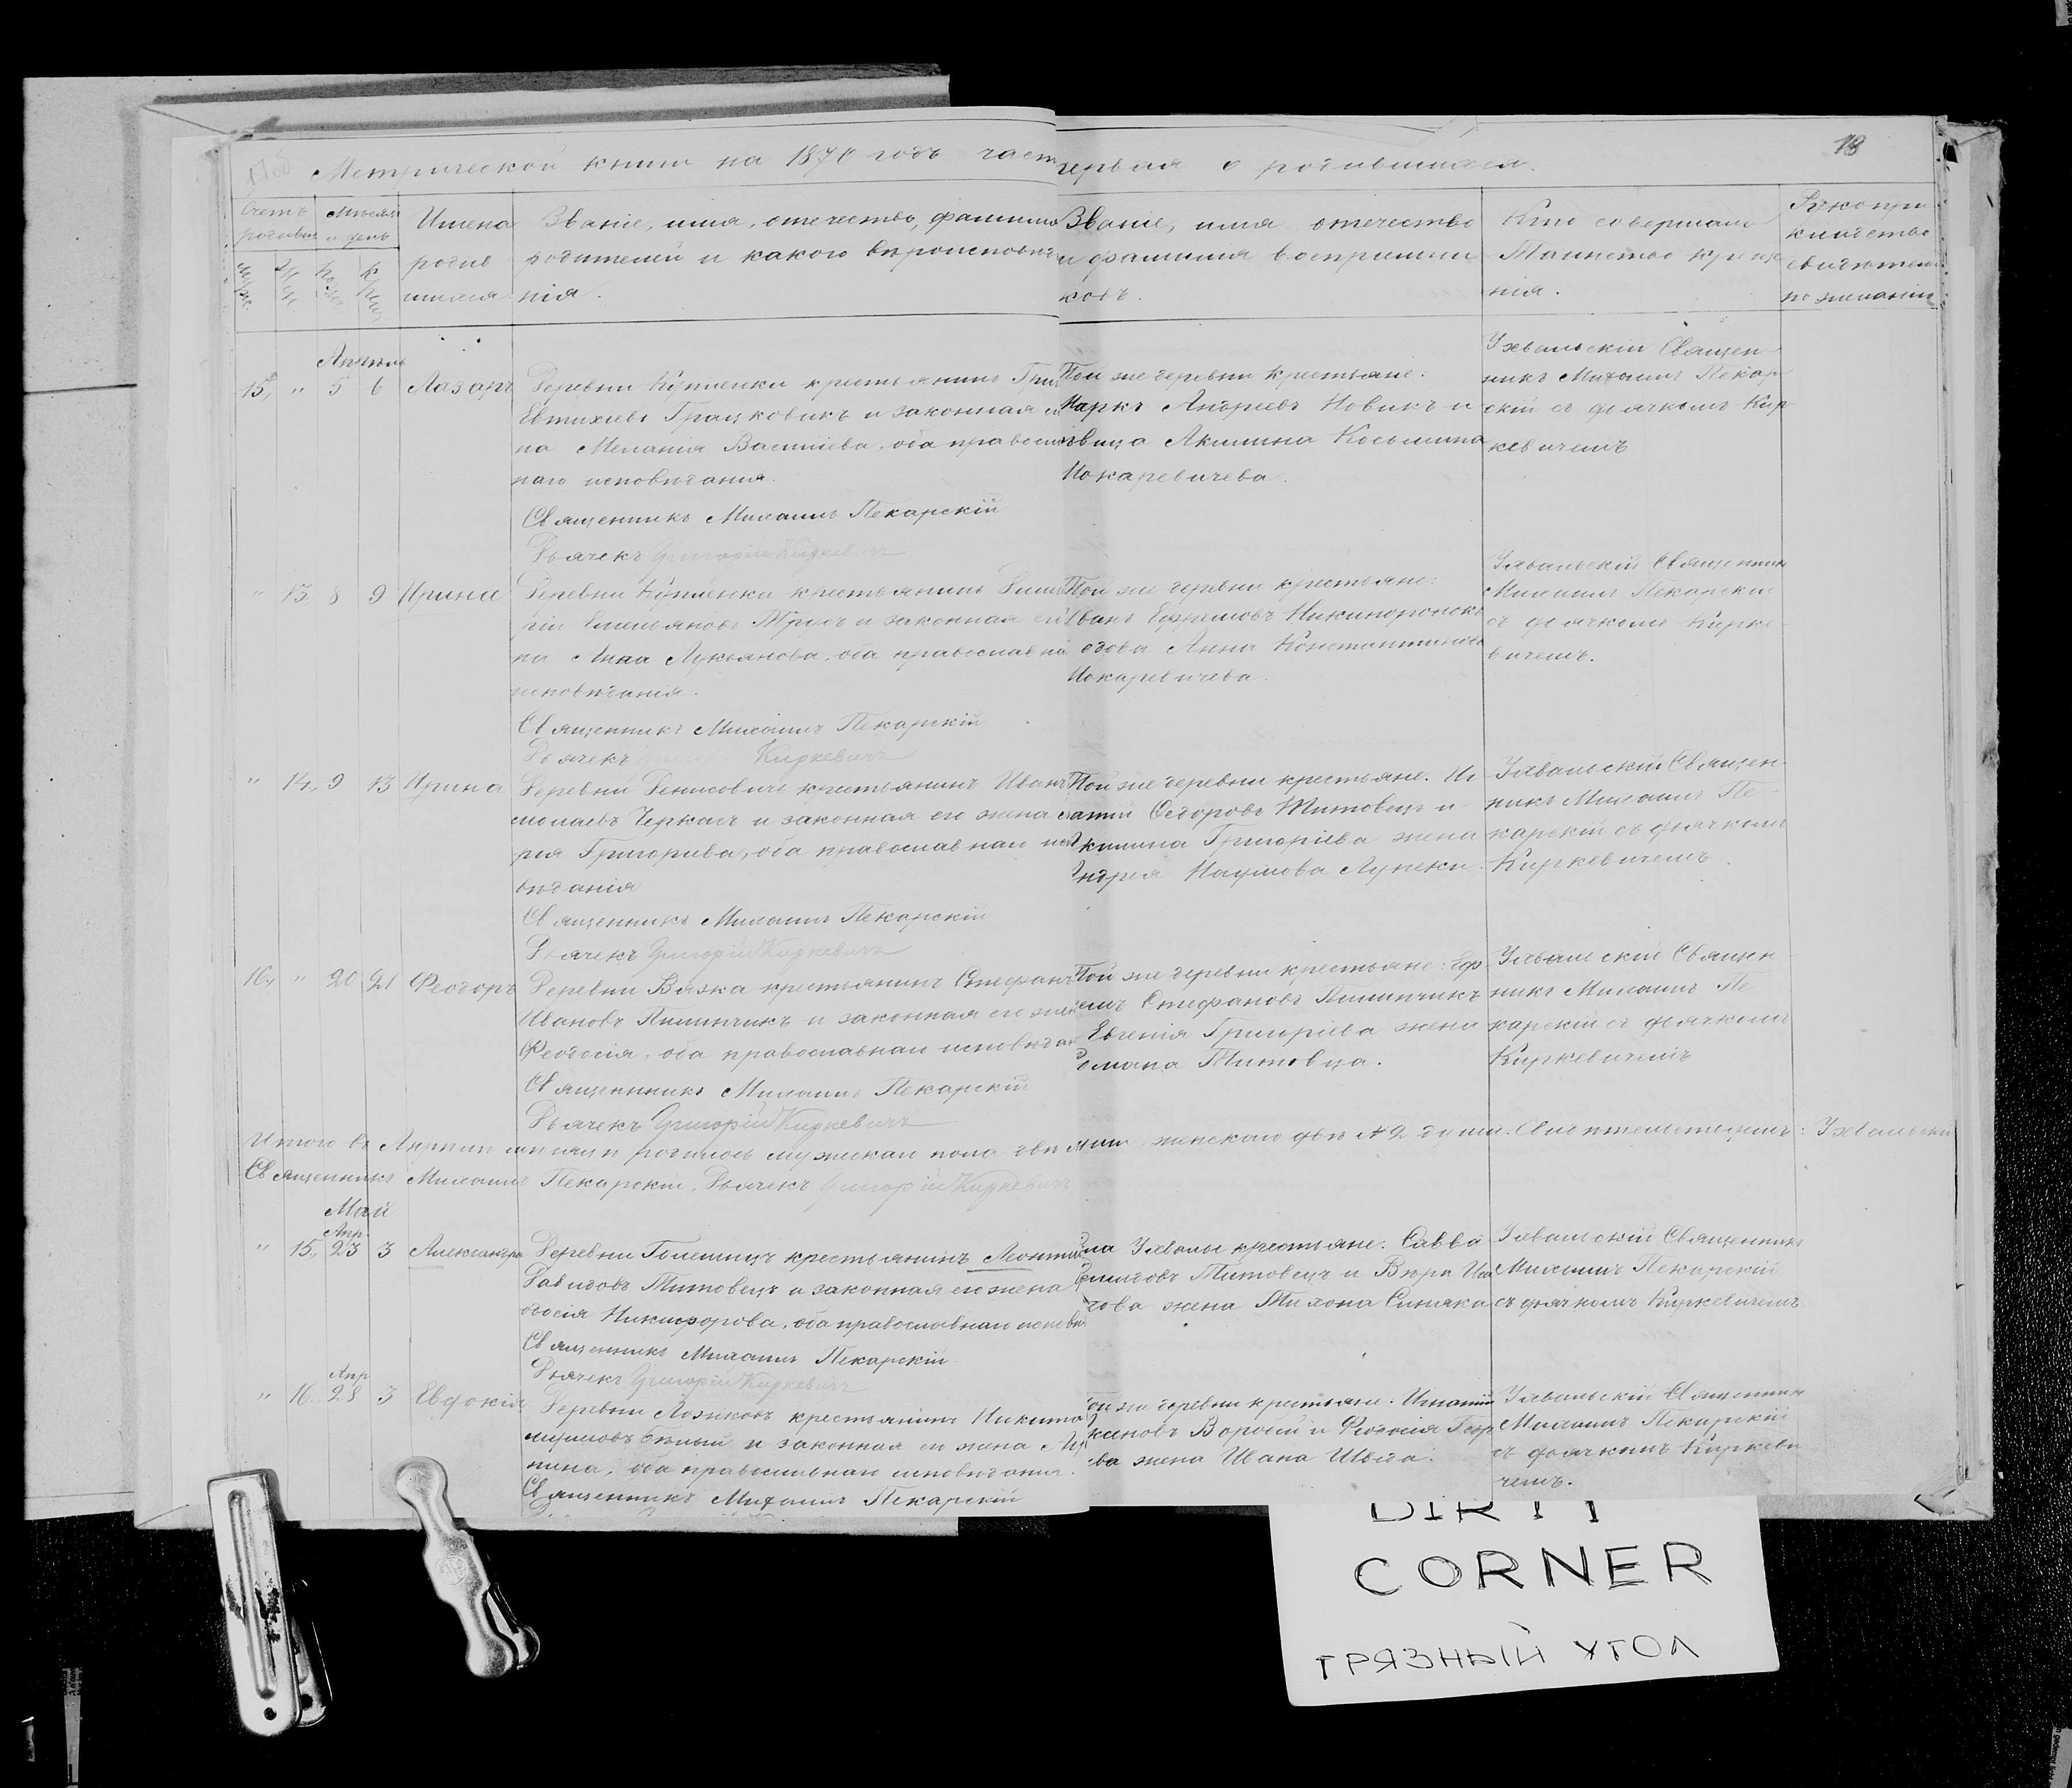 18
Метрической книги на 1870 годъ част
первая о родившихся.
Счетъ родивш
Мѣсяц и день
Имена родив шихся.
Званіе, имя, отечество, фамилия
родителей и какого вѣроисповѣд
нія.
Званіе, имя отечество
и фамилия воспріемни
ковъ.
Кто совершалъ
Таинство креще
нія.
Рукопри
кладство
свидѣтелей
по желанію
Апрѣль
15, " 5 6 Лазарь
Деревни Купленки крестьянинъ Гри
Евтихіевъ Грицковикъ и законная
на Меланія Васильева, оба православ
наго исповѣданія.
Священникъ Михаилъ Пекарскій
Дьячекъ Григорій Киркевичъ
Той же деревни крестьяне.
Маркъ Андреевъ Новикъ и
вица Акилина Косьмина
Мокаревичева.
Ухвальскій Священ
никъ Михаилъ Пекар
скій съ дьячкомъ Кир
кевичемъ
" 13, 8 9 Ирина
Деревни Купленки крестьянинъ Дими
рій Емельяновъ Трусъ и законная его
на Анна Лукьянова, оба православна
исповѣданія.
Священникъ Михаилъ Пекарскій
Дьячекъ Киркевичъ
Той же деревни крестьяне:
Иванъ Ефимовъ Никиноронокъ
вдова Анна Константинова
Мокаревичева.
Ухвальскій Священникъ
Михаилъ Пекарскій
съ дьячкомъ Кирке
вичемъ.
" 14, 9 13 Ирина
Деревни Денисовичъ крестьянинъ Иванъ
колаевъ Черкасъ и законная его жена
рія Григорьева, оба православнаго испо
вѣданія
Священникъ Михаилъ Пекарскій
Дьячекъ Григорій Киркевичъ
Той же деревни крестьяне. Иг
натій Ѳедоровъ Титовецъ и
Акилина Григоріева жена
Андрея Наумова Лупеки.
Ухвальскій Священ
никъ Михаилъ Пе
карскій съ дьячкомъ
Киркевичемъ.
16, " 20 21 Феодоръ
Деревни Вязка крестьянинъ Стефанъ
Ивановъ Пилипчикъ и законная его же
Феодосія, оба православнаго исповѣдан
Священникъ Михаилъ Пекарскій
Дьячекъ Григорій Киркевичъ
Той же деревни крестьяне: Еф
емъ Стефановъ Пилипчикъ
Евгенія Григоріева жена
Романа Титовца.
Ухвальскій Священ
никъ Михаилъ Пе
карскій съ дьячкомъ
Киркевичемъ
Итого въ Апрѣлѣ мѣсяцѣ родилось мужскаго пола двѣ женскаго двѣ № 2 души. Свидѣтельствуемъ: Ухвальскій
Священникъ Михаилъ Пекарскій. Дьячекъ Григорій Киркевичъ
Май
Апр.
" 15, 23 3 Александра
Деревни Големицъ крестьянинъ Леонтій
Давидовъ Титовецъ и законная его жена
одосія Никифорова, оба православнаго исповѣ
Священникъ Михаилъ Пекарскій
Дьячекъ Григорій Киркевичъ
Ухвалы крестьяне. Савва
Титовецъ и Вѣра
жена Тихона Синяка
Ухвальскій Священникъ
Михаилъ Пекарскій
съ дьячкомъ Киркевичемъ
Апр
" 16. 28 3 Евдокія
Деревни Лозковъ крестьянинъ Никита
и законная его жена
оба православнаго исповѣданія.
Священникъ Михаилъ Пекарскій
Той же деревни крестьяне. Игнатій
Ворогий и Феодосія Геор
ева жена Ивана Шведа.
Ухвальскій Священникъ
Михаилъ Пекарскій
съ дьячкомъ Киркеви
чемъ.
DIRTY
CORNER
ГРЯЗНЫЙ УГОЛ